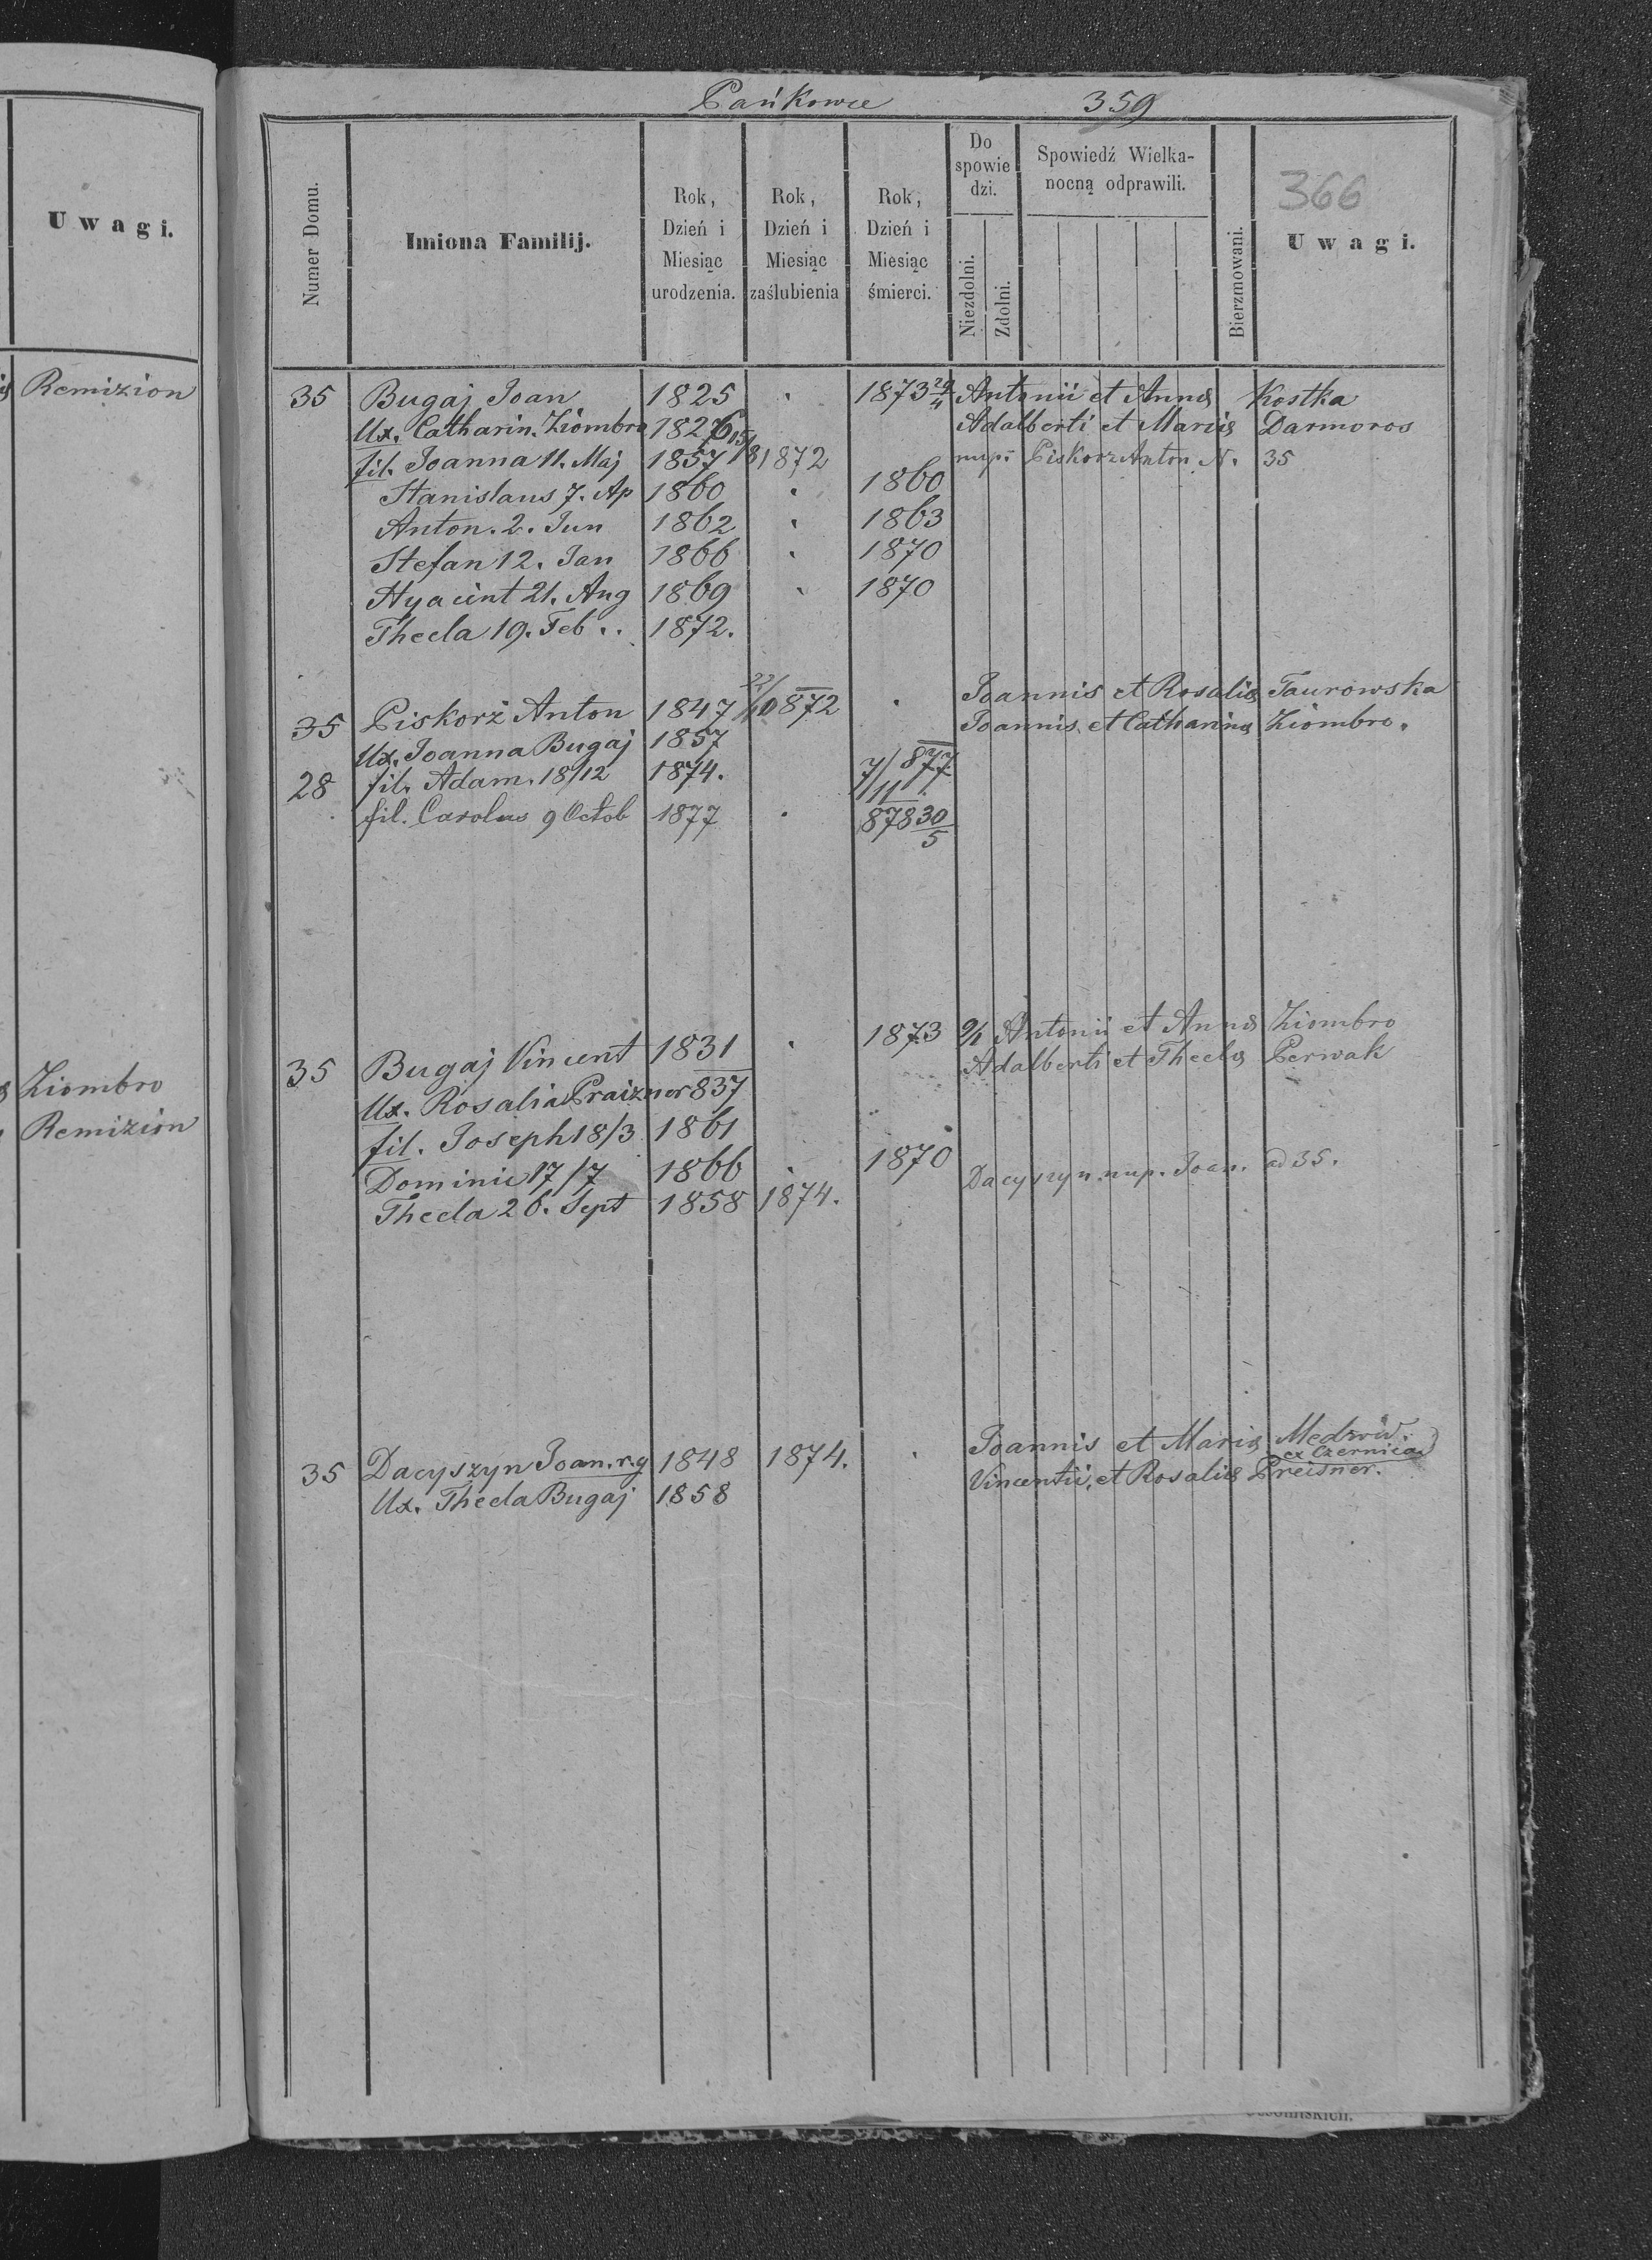 Uwagi.
Remizion
Ziombro
Remizion
Pańkowce 359
Numer Domu.
Imiona Familij.
Rok, Dzień i Miesiąc urodzenia.
Rok, Dzień i Miesiąc zaślubienia
Rok, Dzień i Miesiąc śmierci.
Do spowie dzi.
Niezdolni.
Zdolni.
Spowiedź Wielka-
nocną odprawili.
Bierzmowani.
366
Uwagi.
35 Bugaj Joan 1825 . 1873 29/4 Antonii et Annæ Kostka
Ux. Catharin. Ziombro 1826 Adalberti et Mariæ Darmoros
fil. Joanna 11. Maj 1857 1872 nup: Piskorz Anton N. 35
Stanislaus 7. Ap 1860 . 1860
Anton. 2. Jun 1862 . 1863
Stefan 12. Jan 1866 . 1870
Hyacint 21. Aug 1869 . 1870
Thecla 19. Feb .. 1872.
35 Piskorż Anton 1847 22/10 872 . Joannis et Rosaliæ Taurowska
Ux. Joanna Bugaj 1857 Joannis et Catharinæ Ziombro.
28 fil. Adam. 18/12 1874. 7/11 877
fil. Carolus 9 Octob 1877 . 878 30/5
35 Bugaj Vincent 1831 . 1873 9/1 Antonii et Annæ Ziombro
Ux. Rosalia Praizner 837 Adalberti et Theclæ Perwak
fil. Joseph 18/3 1861
Dominic 17/7 1866 . 1870
Thecla 26. Sept 1858 1874. Dacyszyn nup. Joan. ad 35.
35 Dacyszyn Joan. r.g 1848 1874. . Joannis et Mariæ Medzwid.
ex Czernica
Ux. Thecla Bugaj 1858 Vincentii, et Rosaliæ Preisner.